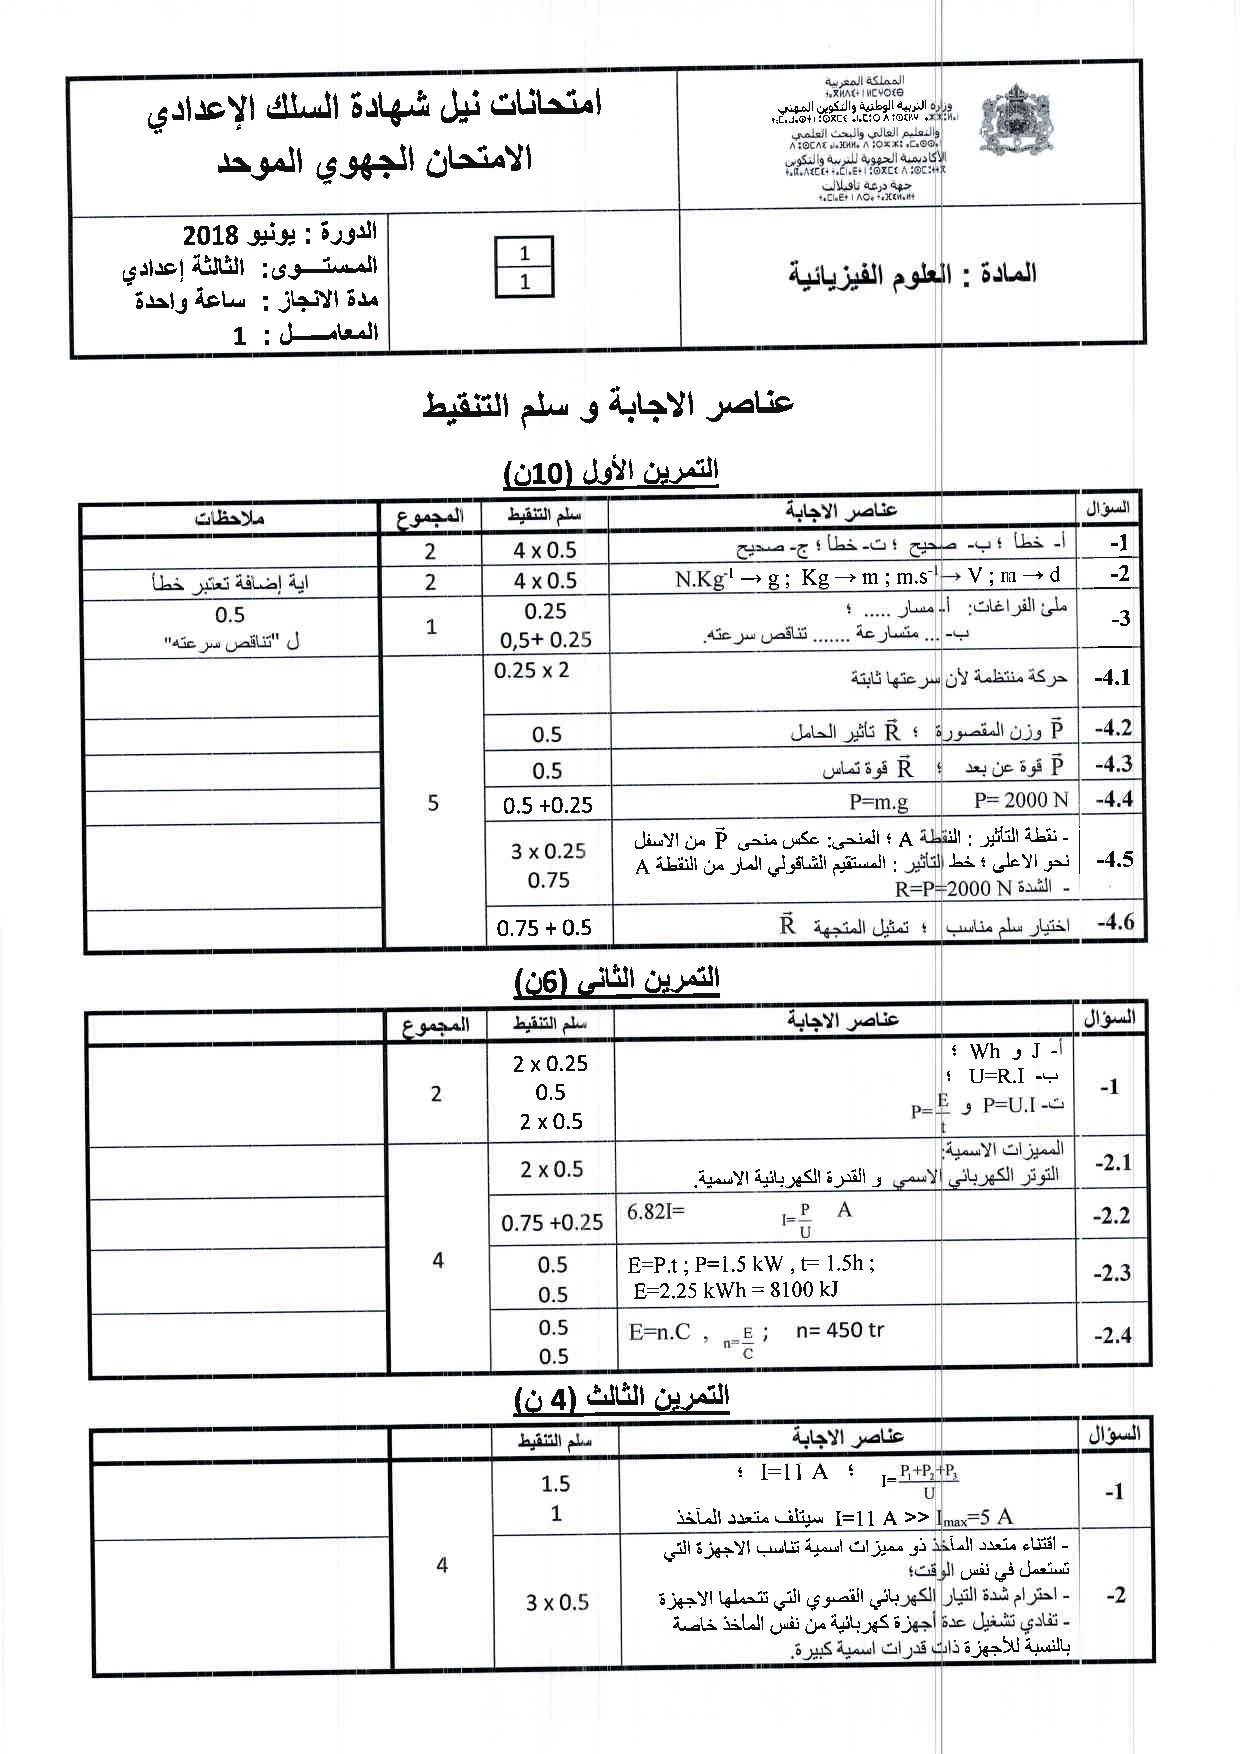 المملكة المغربية
وزارة التربية الوطنية والتكوين المهني
والتعليم العالي والبحث العلمي
الأكاديمية الجهوية للتربية والتكوين
جهة درعة تافيلالت
امتحانات نيل شهادة السلك الإعدادي
الامتحان الجهوي الموحد
المادة : العلوم الفيزيائية
1
1
الدورة : يونيو 2018
المستوى: الثالثة إعدادي
مدة الانجاز : ساعة واحدة
المعامل : 1
عناصر الاجابة و سلم التنقيط
التمرين الأول (10ن)
السؤال عناصر الاجابة سلم التنقيط المجموع ملاحظات
-1 أ- خطأ ؛ ب- صحيح ؛ ت- خطأ ؛ ج- صحيح 4 x 0.5 2
-2 N.Kg⁻¹ → g ; Kg → m ; m.s⁻¹ → V ; m → d 4 x 0.5 2 اية إضافة تعتبر خطأ
-3 ملئ الفراغات: أ- مسار ..... ؛ 0.25 1 0.5
ب- ... متسارعة ....... تناقص سرعته. 0,5+ 0.25 ل "تناقص سرعته"
-4.1 حركة منتظمة لأن سرعتها ثابتة 0.25 x 2
-4.2 P⃗ وزن المقصورة ؛ R⃗ تأثير الحامل 0.5
-4.3 P⃗ قوة عن بعد ؛ R⃗ قوة تماس 0.5
-4.4 P= 2000 N P=m.g 0.5 +0.25 5
-4.5 - نقطة التأثير : النقطة A ؛ المنحى: عكس منحى P⃗ من الاسفل
نحو الاعلى ؛ خط التأثير : المستقيم الشاقولي المار من النقطة A 3 x 0.25
- الشدة R=P=2000 N 0.75
-4.6 اختيار سلم مناسب ؛ تمثيل المتجهة R⃗ 0.75 + 0.5
التمرين الثاني (6ن)
السؤال عناصر الاجابة سلم التنقيط المجموع
-1 أ- J و Wh ؛ 2 x 0.25 2
ب- U=R.I ؛ 0.5
ت- P=U.I و P=E/t 2 x 0.5
-2.1 المميزات الاسمية:
التوتر الكهربائي الاسمي و القدرة الكهربائية الاسمية. 2 x 0.5
-2.2 6.82I= I=P/U A 0.75 +0.25
-2.3 E=P.t ; P=1.5 kW , t= 1.5h ; 0.5 4
E=2.25 kWh = 8100 kJ 0.5
-2.4 E=n.C , n=E/C ; n= 450 tr 0.5
0.5
التمرين الثالث (4 ن)
السؤال عناصر الاجابة سلم التنقيط
-1 I=(P₁+P₂+P₃)/U ؛ I=11 A ؛ 1.5
I=11 A >> Imax=5 A سيتلف متعدد المآخذ 1
4
-2 - اقتناء متعدد المآخذ ذو مميزات اسمية تناسب الاجهزة التي
تستعمل في نفس الوقت؛
- احترام شدة التيار الكهربائي القصوي التي تتحملها الاجهزة 3 x 0.5
- تفادي تشغيل عدة أجهزة كهربائية من نفس المأخذ خاصة
بالنسبة للأجهزة ذات قدرات اسمية كبيرة.